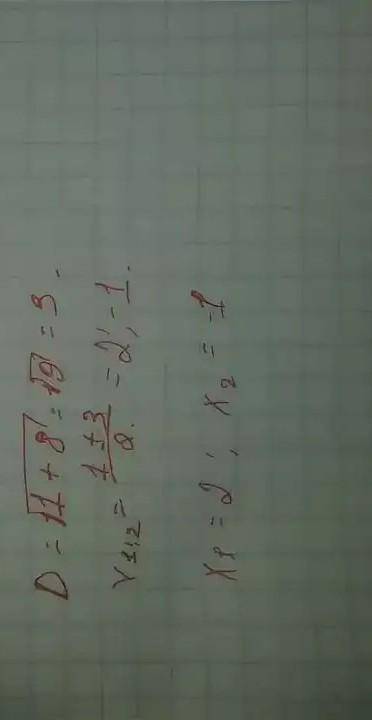 D = √1+8 = √9 = 3.
x₁,₂ = (1 ± 3)/2. = 2; -1.
x₁ = 2; x₂ = -1